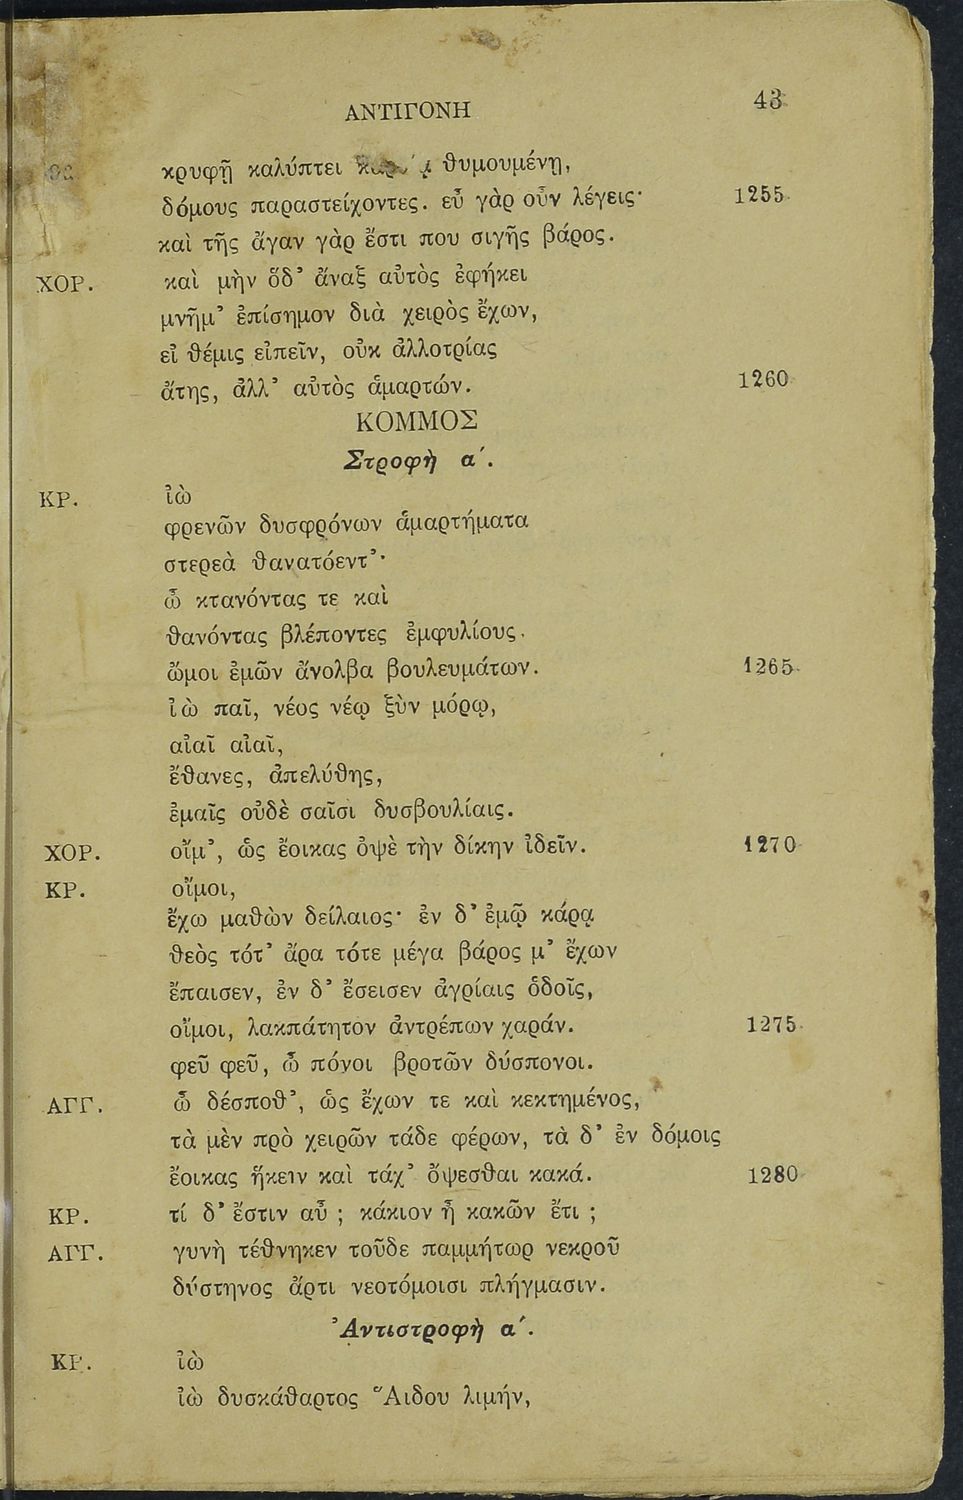 ΑΝΤΙΓΟΝΗ 43
κρυφῇ καλύπτει θυμουμένῃ,
δόμους παραστείχοντες. εὖ γὰρ οὖν λέγεις· 1255
καὶ τῆς ἄγαν γὰρ ἔστι που σιγῆς βάρος.
ΧΟΡ. καὶ μὴν ὅδ’ ἄναξ αὐτὸς ἐφήκει
μνῆμ’ ἐπίσημον διὰ χειρὸς ἔχων,
εἰ θέμις εἰπεῖν, οὐκ ἀλλοτρίας
ἄτης, ἀλλ’ αὐτὸς ἁμαρτών. 1260
ΚΟΜΜΟΣ
Στροφὴ α΄.
ΚΡ. ἰὼ
φρενῶν δυσφρόνων ἁμαρτήματα
στερεὰ θανατόεντ’·
ὦ κτανόντας τε καὶ
θανόντας βλέποντες ἐμφυλίους.
ὤμοι ἐμῶν ἄνολβα βουλευμάτων. 1265
ἰὼ παῖ, νέος νέῳ ξὺν μόρῳ,
αἰαῖ αἰαῖ,
ἔθανες, ἀπελύθης,
ἐμαῖς οὐδὲ σαῖσι δυσβουλίαις.
ΧΟΡ. οἴμ’, ὡς ἔοικας ὀψὲ τὴν δίκην ἰδεῖν. 1270
ΚΡ. οἴμοι,
ἔχω μαθὼν δείλαιος· ἐν δ’ ἐμῷ κάρᾳ
θεὸς τότ’ ἄρα τότε μέγα βάρος μ’ ἔχων
ἔπαισεν, ἐν δ’ ἔσεισεν ἀγρίαις ὁδοῖς,
οἴμοι, λακπάτητον ἀντρέπων χαράν. 1275
φεῦ φεῦ, ὦ πόνοι βροτῶν δύσπονοι.
ΑΓΓ. ὦ δέσποθ’, ὡς ἔχων τε καὶ κεκτημένος,
τὰ μὲν πρὸ χειρῶν τάδε φέρων, τὰ δ’ ἐν δόμοις
ἔοικας ἥκειν καὶ τάχ’ ὄψεσθαι κακά. 1280
ΚΡ. τί δ’ ἔστιν αὖ ; κάκιον ἢ κακῶν ἔτι ;
ΑΓΓ. γυνὴ τέθνηκεν τοῦδε παμμήτωρ νεκροῦ
δύστηνος ἄρτι νεοτόμοισι πλήγμασιν.
Ἀντιστροφὴ α΄.
ΚΡ. ἰὼ
ἰὼ δυσκάθαρτος Ἅιδου λιμήν,